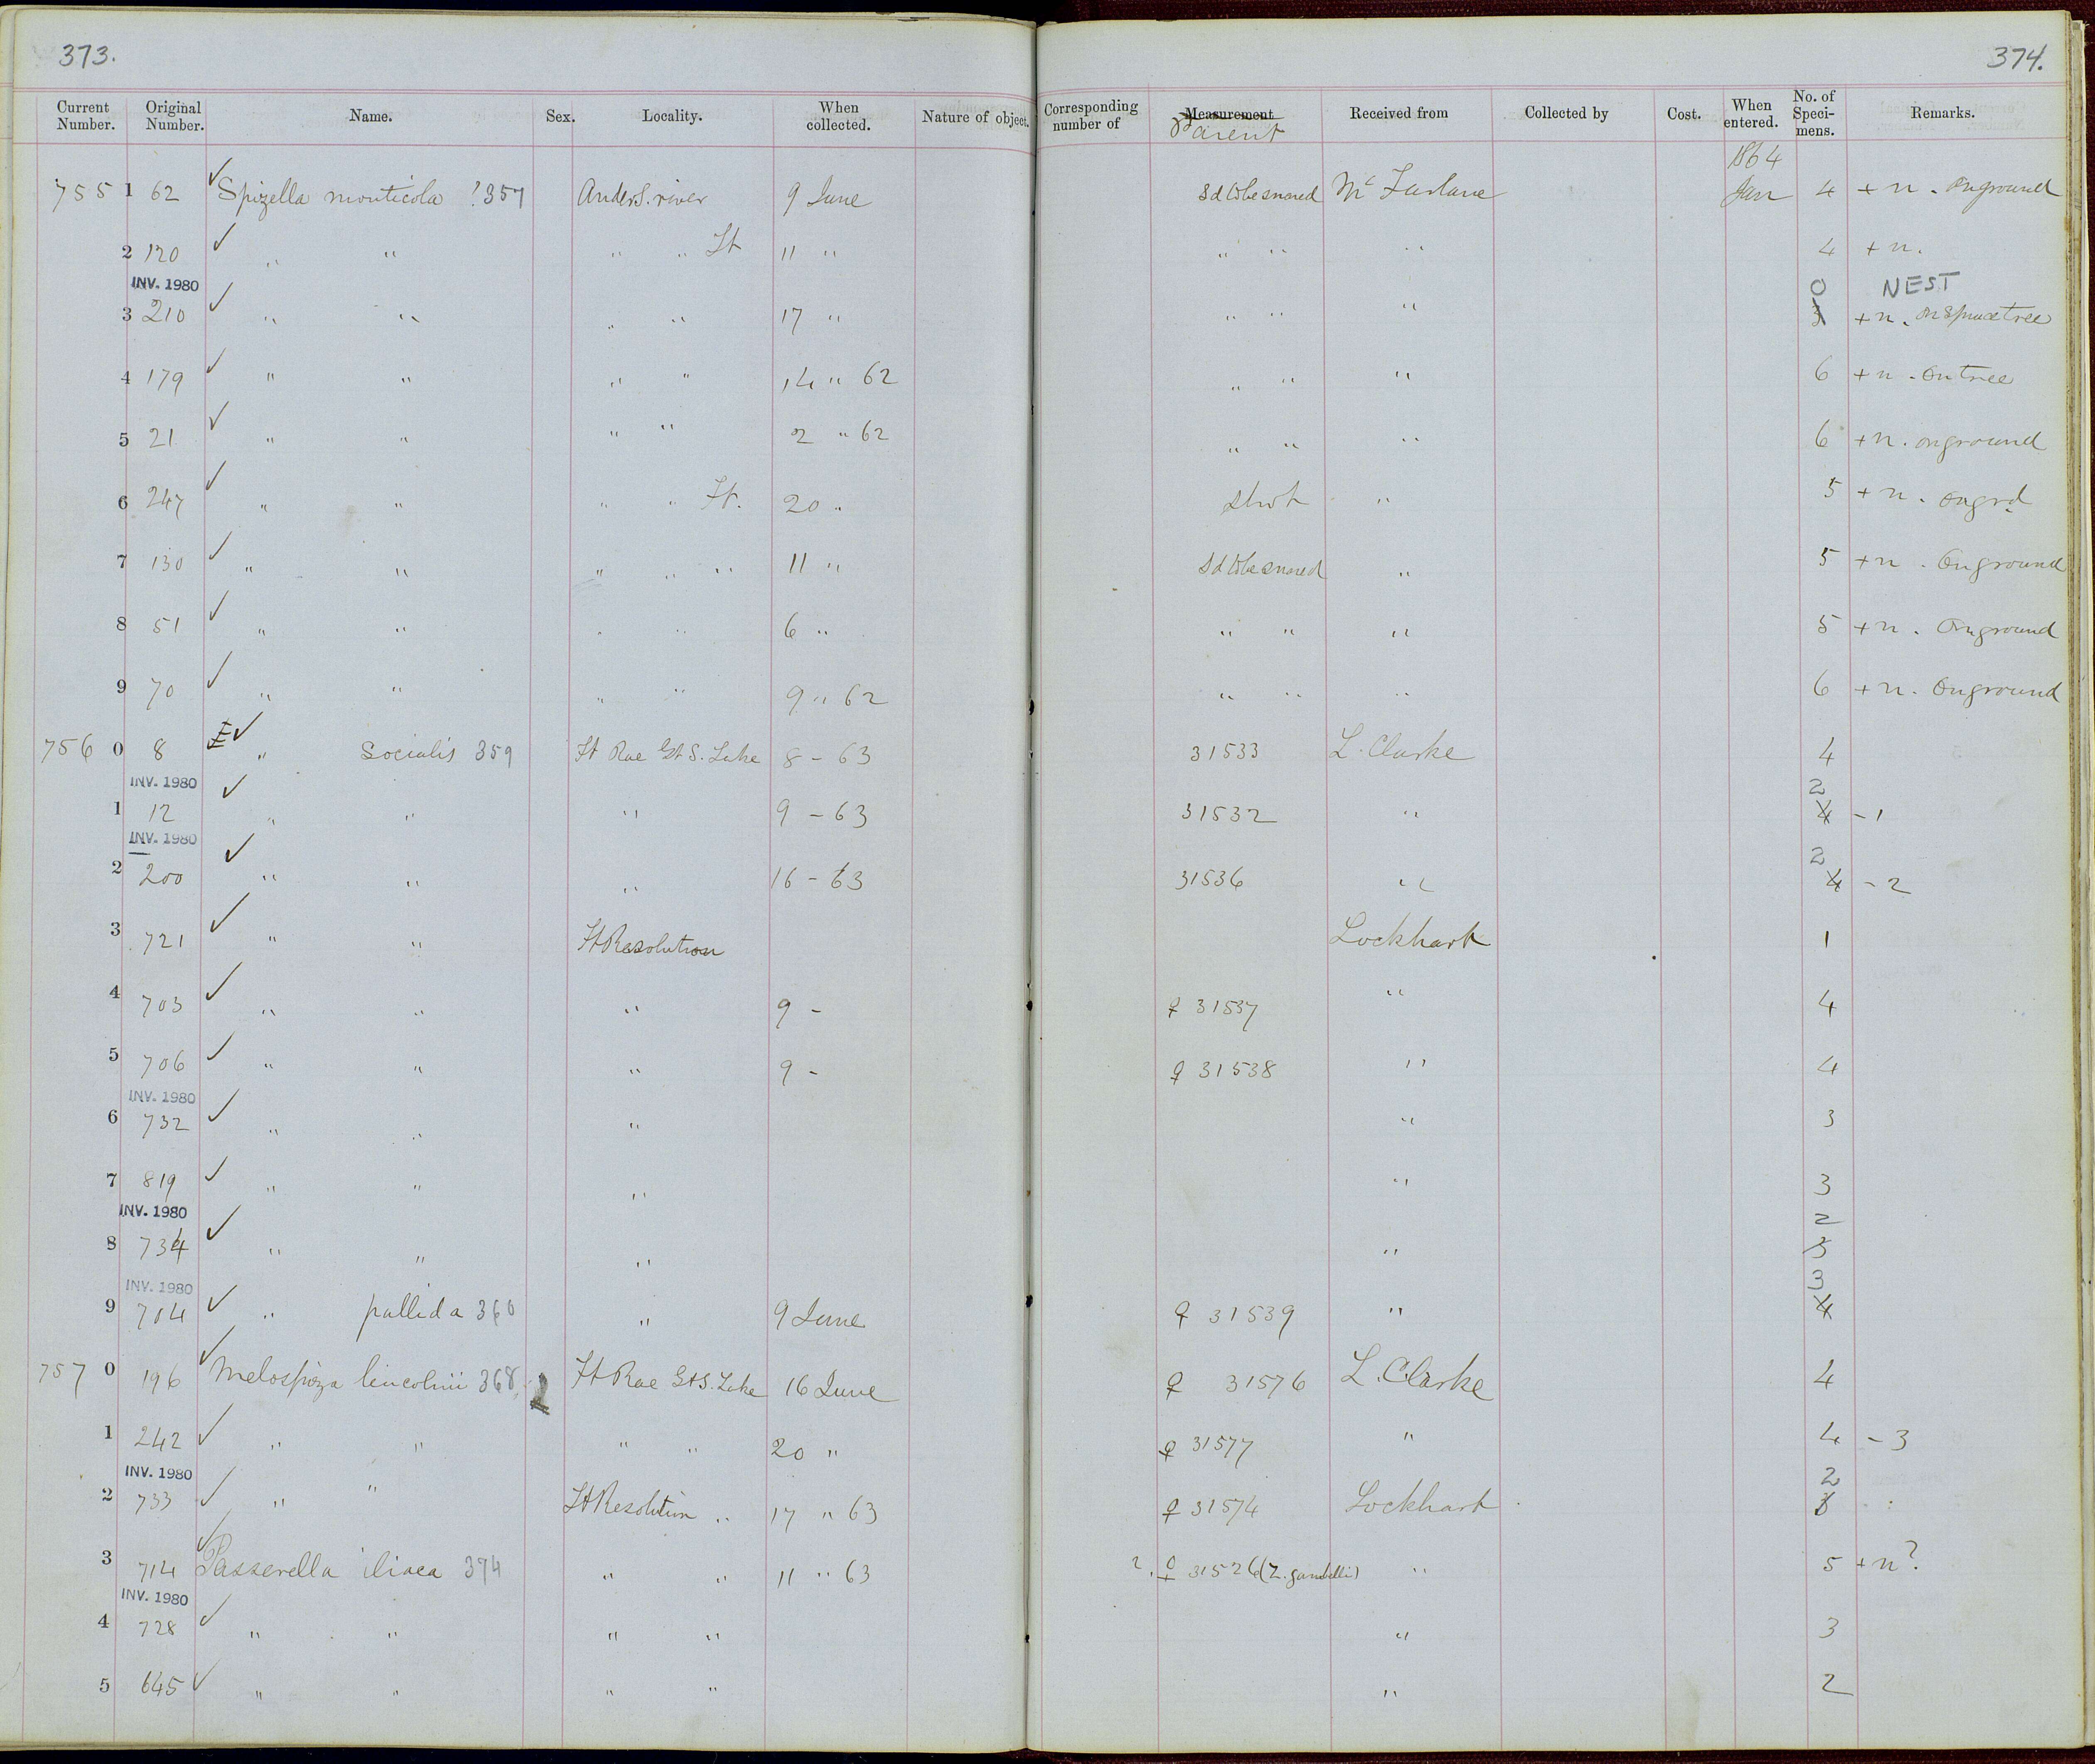 373.
374.
Current Number. Original Number. Name. Sex. Locality. When collected. Nature of object. Corresponding number of Measurement Parent Received from Collected by Cost. When entered. No. of Specimens. Remarks.
1864
755 1 62 ✓ Spizella monticola 357 Anders. river 9 June Sd to be snared Mc Farlane Jan 4 + n. On ground
2 120 ✓ " " " " Ft 11 " " " " 4 + n.
INV. 1980 0 NEST
3 210 ✓ " " " " 17 " " " " 3 + n. on spruce tree
4 179 ✓ " " " " 14 " 62 " " " 6 + n. On tree
5 21 ✓ " " " " 2 " 62 " " " 6 + n. on ground
6 247 ✓ " " " " Ft. 20 " Shot " 5 + n. On grd
7 130 ✓ " " " " " 11 " Sd to be snared " 5 + n. On ground
8 51 ✓ " " " " 6 " " " " 5 + n. On ground
9 70 ✓ " " " " 9 " 62 " " " 6 + n. On ground
756 0 8 E ✓ " socialis 359 Ft Rae Gt S. Lake 8 - 63 31533 L. Clarke 4
INV. 1980 2
1 12 ✓ " " " 9 - 63 31532 " 4 - 1
INV. 1980 2
2 200 ✓ " " " 16 - 63 31536 " 4 - 2
3 721 ✓ " " Ft Resolution Lockhart 1
4 703 ✓ " " " 9 - ♀ 31537 " 4
5 706 ✓ " " " 9 - ♀ 31538 " 4
INV. 1980
6 732 ✓ " " " " 3
7 819 ✓ " " " " 3
INV. 1980 2
8 734 ✓ " " " " 3
INV. 1980 3
9 704 ✓ " pallida 360 " 9 June ♀ 31539 " 4
757 0 196 ✓ Melospiza lincolnii 368 Ft Rae Gt S. Lake 16 June ♀ 31576 L. Clarke 4
1 242 ✓ " " " " 20 " ♀ 31577 " 4 - 3
INV. 1980 2
2 733 ✓ " " Ft Resolution " 17 " 63 ♀ 31574 Lockhart 3
3 714 ✓ Passerella iliaca 374 " " 11 " 63 ?. ♀ 31526 (Z. gambelli) " 5 + n?
INV. 1980
4 728 ✓ " " " " " 3
5 645 ✓ " " " " " 2